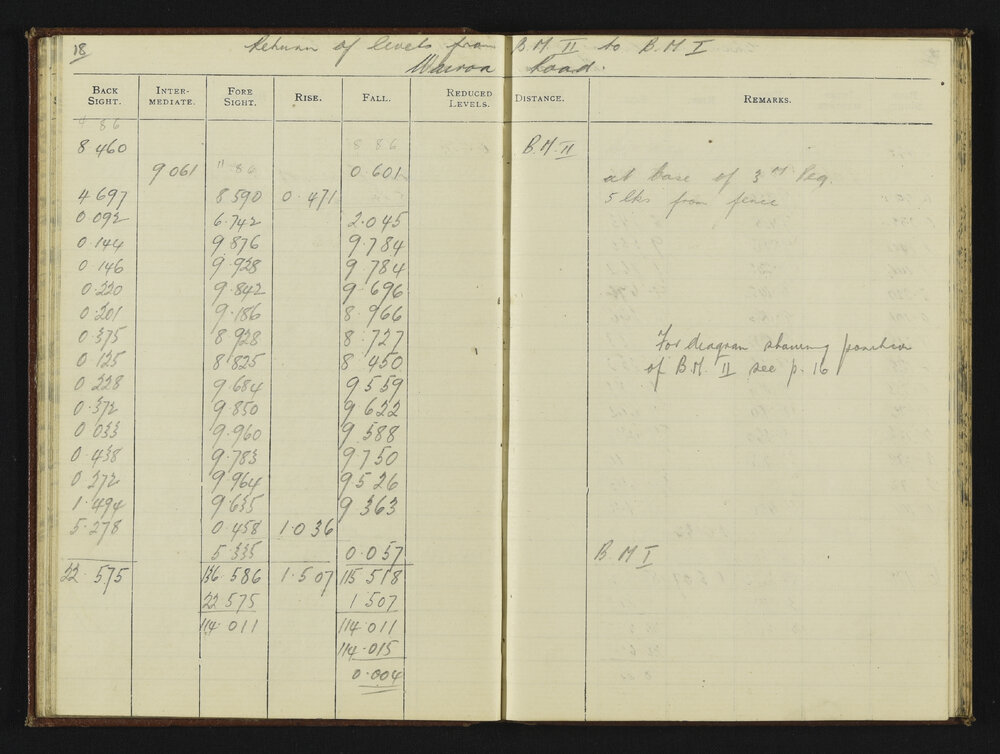 18 Return of levels from B.M II to B.M I
Wairoa Road.
BACK SIGHT. INTER-MEDIATE. FORE SIGHT. RISE. FALL. REDUCED LEVELS. DISTANCE. REMARKS.
86
8 460 8 86 B.M. II
9 061 " 86 0.601 at base of 3 M Peg.
4 697 8 590 0.471 5 lks from fence
0 092 6.742 2.045
0.144 9.876 9.784
0.146 9.928 9 784
0.220 9.842 9.696
0.201 9.186 8.966
0.375 8 928 8.727
For diagram showing position
0 125 8 825 8 450
of B.M. II see p. 16
0 228 9 684 9 559
0.372 9.850 9 622
0 033 9.960 9 588
0.438 9.783 9 750
0.272 9.964 9 526
1.494 9.635 9 363
5.278 0.458 1.036
5 335 0.057 B.M I
22.575 136.586 1.507 115 518
22 575 1 507
114.011 114.011
114.015
0.004